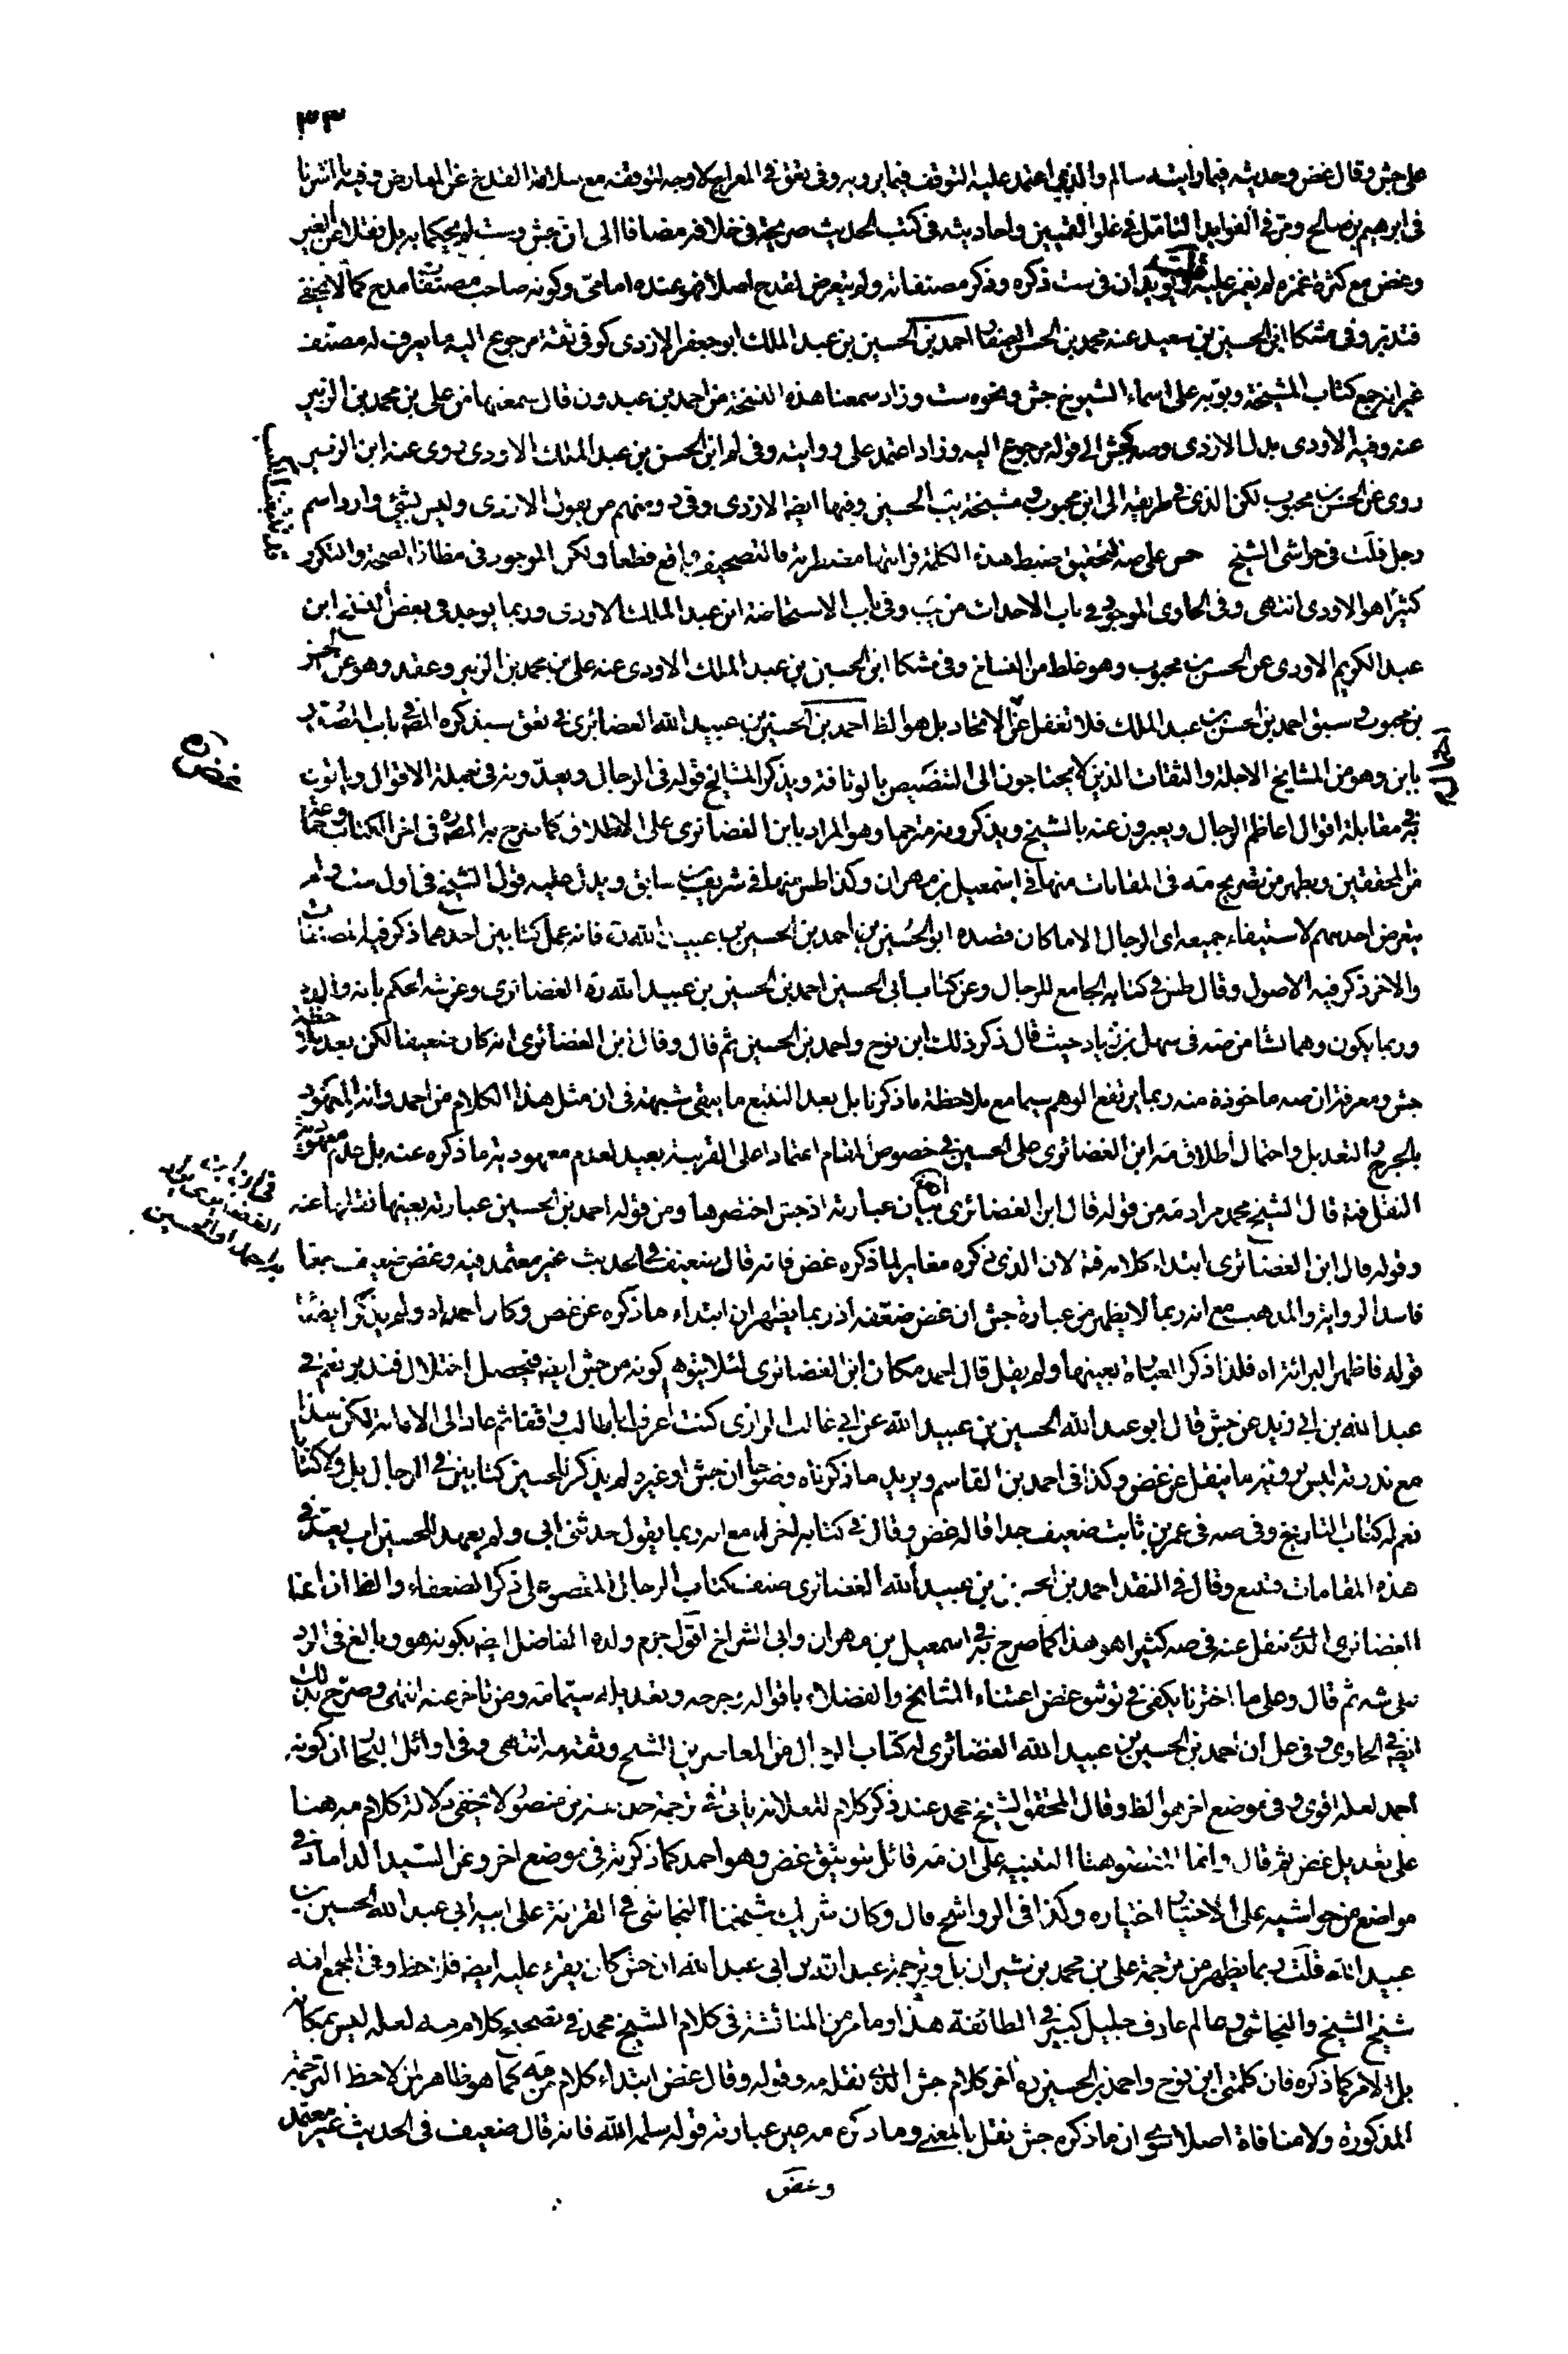 ٣٣
على جش وقال غض وحديثه فيما رايته سالم والذي اعتمد عليه التوقف فيما يرويه وفى تعق في المعراج لا وجه لتوقفه مع سلامة القدح عن المعارض وفيه ما اشرنا
فى ابرهيم بن صالح ومر في الفوايد التامل في غلو القميين واحاديثه فى كتب الحديث صريحة فى خلافه مضافا الى ان جش وست لم يحكما به بل نقلا عن الغير
وغض مع كثرة غمزه لم يغمز عليه ويؤيده ان فى ست ذكره وذكر مصنفاته ولم يتعرض لقدح اصلا فهو عنده امامى وكونه صاحب مصنفات مدح كما لا يخفى
فتدبر وفى مشكا ابن الحسين بن سعيد عنه محمد بن الحسن الصفار احمد بن الحسين بن عبد الملك ابو جعفر الازدى كوفى ثقة مرجوع اليه ما يعرف له مصنف
غير انه جمع كتاب المشيخة وبوبه على اسماء الشيوخ جش ونحوه ست وزاد سمعنا هذه النسخة من احمد بن عبدون قال سمعتها من على بن محمد بن الزبير
عنه وفيه الاودى بدل الازدى وصه كجش الى قوله مرجوع اليه وزاد اعتمد على روايته وفى لم ابن الحسن بن عبد الملك الاودى روى عنه ابن الزبير
روى عن الحسن بن محبوب لكن الذى فى طريقه الى ابن محبوب ومشيخته يب الحسين وفيها ايضا الازدى وقى د ومنهم من يقول الازدى وليس بشئ وارد اسم
رجل قلت فى حواشى الشيخ على صه لتحقيق ضبط هذه الكلمة فرايتها مضطربة فالتصحيف واقع قطعا ولكن الموجود فى مظان الصحة والتكرر
كثيرا هو الاودى انتهى وفى الحاوى الموجود في باب الاحداث من يب وفى باب الاستحاضة ابن عبد الملك الاودى وربما يوجد فى بعض النسخ ابن
عبد الكريم الاودى عن الحسن بن محبوب وهو غلط من النساخ وفى مشكا ابن الحسين بن عبد الملك الاودى عنه على بن محمد بن الزبير وعقد وهو عن الحسن
بن محبوب وسبق احمد بن الحسن بن عبد الملك فلا تغفل عن الاتحاد بل هو الظ احمد بن الحسين بن عبيد الله الغضائرى في تعق سيذكره المصه في باب المصدر
بابن وهو من المشايخ الاجلة والثقات الذين لا يحتاجون الى التنصيص بالوثاقة ويذكر المشايخ قوله فى الرجال ويعدونه فى جملة الاقوال ويأتون
به فى مقابلة اقوال اعاظم الرجال ويعبرون عنه بالشيخ ويذكرونه مترحما وهو المراد بابن الغضائرى على الاطلاق كما صرح به المصه فى اخر الكتاب
من المحققين ويظهر من تصريح صه فى المقامات منها فى اسمعيل بن مهران وكذا طس منهما فى شريف بن سابق ويدل عليه قول الشيخ فى اول ست ولم
يتعرض احد منهم لاستيفاء جميعه اى الرجال الا ما كان قصده ابو الحسين بن احمد بن الحسين بن عبيد الله ره فانه عمل كتابين احدهما ذكر فيه المصنفات
والاخر ذكر فيه الاصول وقال طس فى كتابه الجامع للرجال وعن كتاب أبى الحسين احمد بن الحسين بن عبيد الله ره الغضائرى وعن شه الحكم بانه والده
وربما يكون وهما نشا من صه فى سهل بن زياد حيث قال ذكر ذلك ابن نوح واحمد بن الحسين ثم قال وقال ابن الغضائرى انه كان ضعيفا لكن بعد ملاحظة
جش ومعرفة ان صه ماخوذة منه ربما يرتفع الوهم سيما مع ملاحظة ما ذكرنا بل بعد التتبع ما يبقى شبهة فى ان مثل هذا الكلام من احمد وانه المعهود
بالجرح والتعديل واحتمال اطلاق صه ابن الغضائرى على الحسين في خصوص المقام اعتمادا على القرينة بعيد لعدم معهودية ما ذكره عنه بل عدم معهودية
النقل منه قال الشيخ محمد مراد صه من قوله قال ابن الغضائرى بيان عبارته اذ جش اختصرها ومن قوله احمد بن الحسين عبارته بعينها نقلها عنه
وقوله قال ابن الغضائرى ابتداء كلامه فيه لان الذى ذكره مغاير لما ذكره غض فانه قال ضعيف في الحديث غير معتمد فيه وغض ضعيف
فاسد الرواية والمذهب مع انه ربما لا يظهر من عبارة جش ان غض ضعفه اذ ربما يظهر ان ابتداء ما ذكره عن غض وكان احمد اه ولم يذكر ايضا
قوله فاظهر البرائة اه فلذا ذكر العبارة بعينها ولم يقل قال احمد مكان ابن الغضائرى لئلا يتوهم كونه من جش ايضه فيحصل اختلال فتدبر نعم فى
عبد الله بن ابى زيد عن جش قال ابو عبد الله الحسين بن عبيد الله عن ابى غالب الرازى كنت اعرف ابا طالب واقفا ثم عاد الى الامامة لكن هذا
مع ندرته ليس وتيرته ما ينقل عن غض وكذا فى احمد بن القاسم ويزيد ما ذكرناه وضوحا ان جش او غيره لم يذكر للحسين كتابين فى الرجال بل ولا كتابا
نعم له كتاب التاريخ وفى صه فى عمر بن ثابت ضعيف جدا قاله غض وقال فى كتابه الاخر اه مع انه ربما يقول حدثنى ابى ولم يعهد للحسين اب يعتد فى
هذه المقامات فتتبع وقال فى النقد احمد بن الحسين بن عبيد الله الغضائرى صنف كتاب الرجال المقصور على ذكر الضعفاء والظ ان ابن
الغضائرى الذى ينقل عنه فى صه كثيرا هو هذا كما صرح به فى اسمعيل بن مهران وابى الشداخ اقول جزم ولده الفاضل ايضه بكونه هو وبالغ فى الرد
على شه ثم قال وعلى ما اخترنا يكفى في توثيق غض اعتناء المشايخ والفضلاء باقواله وجرحه وتعديله سيما صه ومن تاخر عنه انتهى وصرح بذلك
ايضه فى الحاوى وفى حل ان احمد بن الحسين بن عبيد الله الغضائرى له كتاب الرجال من المعاصرين الشيخ وثقته صه انتهى وفى اوائل البحار ان كونه
احمد لعله اقوى وفى موضع اخر هو الظ وقال المحقق الشيخ محمد عند ذكر كلام للعلامة يأتى في ترجمة حذيفة بن منصور لا يخفى دلالة كلام صه هنا
على تعديل غض ثم قال وانما المقصود هنا التنبيه على ان صه قائل بتوثيق غض وهو احمد كما ذكرته فى موضع اخر وعن السيد الداماد فى
مواضع من حواشيه على الاختيار اختياره وكذا فى الرواشح قال وكان شريك شيخنا النجاشى في القرائة على ابيه ابى عبد الله الحسين بن
عبيد الله قلت ربما يظهر من ترجمة على بن محمد بن شيران بل وترجمة عبد الله بن ابى عبد الله ان جش كان يقرء عليه ايضه فلاحظ وفى المجمع انه
شيخ الشيخ والنجاشى وعالم عارف جليل كبير في الطائفة هذا وما مر من المناقشة فى كلام الشيخ محمد في تصحيح كلام صه لعله ليس بمكانه
بل الامر كما ذكره فان كلمتى ابن نوح واحمد بن الحسين ره اخر كلام جش الذى نقله صه وقوله وقال غض ابتداء كلام من صه كما هو ظاهر لمن لاحظ الترجمة
المذكورة ولا منافاة اصلا سوى ان ما ذكره جش نقل بالمعنى وما ذكره صه عين عبارته قوله سلمه الله فانه قال ضعيف فى الحديث غير معتمد
وغض